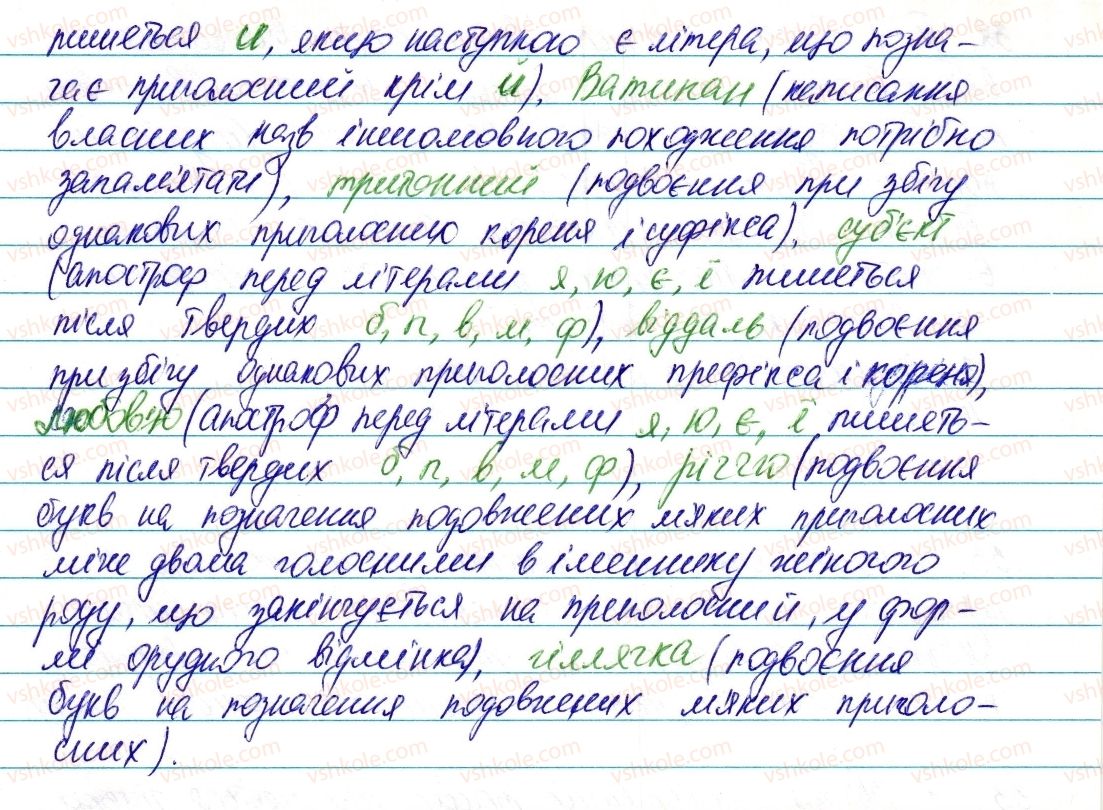 пишеться и, якщо наступною є літера, що позна-
чає приголосний крім й), Ватикан (написання
власних назв іншомовного походження потрібно
запам'ятати), тритонний (подвоєння при збігу
однакових приголосних кореня і суфікса), суб'єкт
(апостроф перед літерами я, ю, є, ї пишеться
після твердих б, п, в, м, ф), віддаль (подвоєння
при збігу однакових приголосних префікса і кореня),
любов'ю (апостроф перед літерами я, ю, є, ї пишеть-
ся після твердих б, п, в, м, ф), річчю (подвоєння
букв на позначення подовжених м'яких приголосних
між двома голосними в іменнику жіночого
роду, що закінчується на приголосний, у фор-
мі орудного відмінка), гіллячка (подвоєння
букв на позначення подовжених м'яких приголо-
сних).